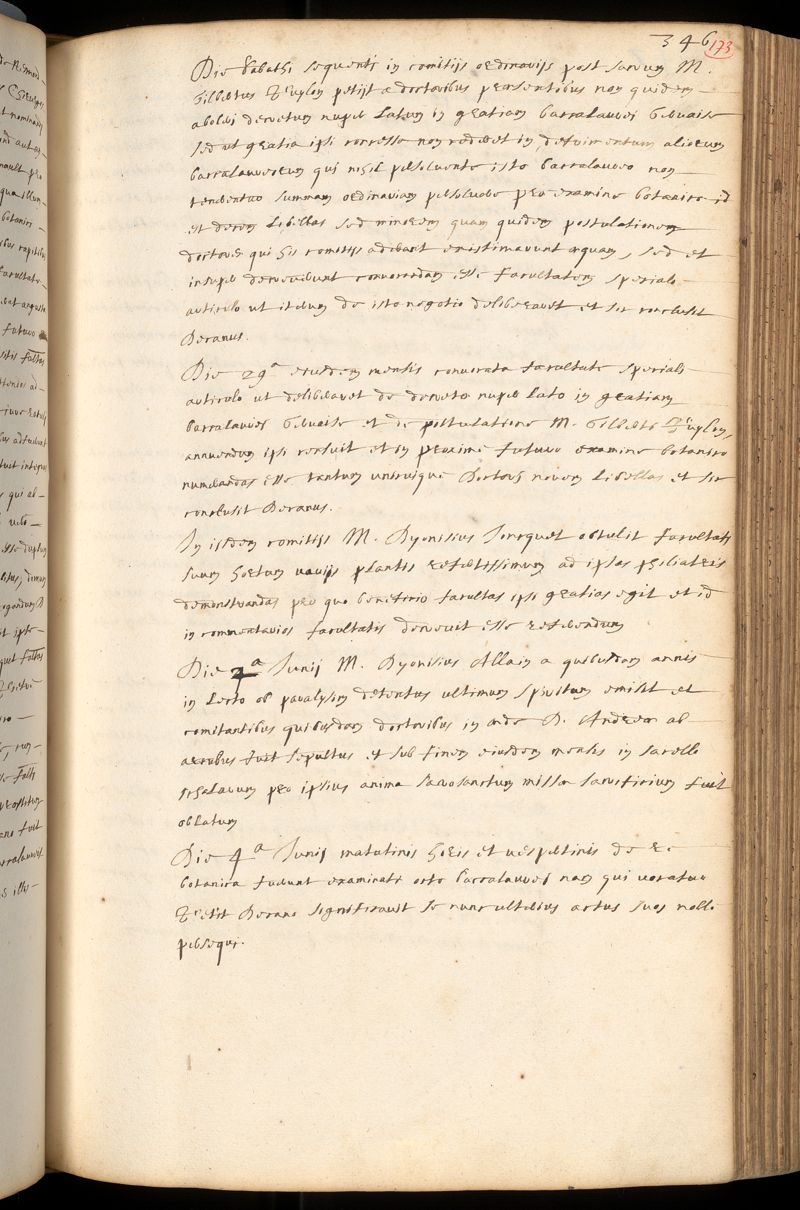 346
173
Die sabathi sequenti in comitijs ordinarijs post sacrum M.
Gilbertus Puylon petijt a doctoribus praesentibus non quidem
aboleri decretum nuper latum in gratiam baccalaurei
sed ut gratia ipsi concessa non cederet in detrimentum aliorum
baccalaureorum qui nihil persolvente isto baccalaureo non
tenebuntur summam ordinariam persolvere pro examine botanico id
et decem libellas sed minorem quam quidem postulationem
doctores qui his comitijs aderant existimarunt aequam, sed et
insuper decreverunt convocandam esse facultatem speciali
articulo ut iterum de isto negotio deliberaret et sic conclusit
Decanus.
Die 29a eiusdem mensis convocata facultate speciali
articulo ut deliberaret de decreto nuper lato in gratiam
baccalaurei et de postulatione M. Gilberti Puylon,
annuendum ipsi censuit et in proximo futuro examine botanico
numerandas esse tantum unicuique Doctori novem libellas et sic
conclusit Decanus.
In iisdem comitijs M. Dyonisius Joncquet obtulit facultati
suum hortum varijs plantis refertissimum ad ipsas philiatris
demonstrandas pro quo beneficio facultas ipsi gratias egit et id
in commentarios facultatis decrevit esse referendum
Die 2a Junij M. Dyonisius Allain a quibusdam annis
in lecto ob paralysim detentus ultimum spiritum emisit et
comitantibus quibusdam doctoribus in aede D. Andreae ab
arcubus fuit sepultus et sub finem eiusdem mensis in sacello
scholarum pro ipsius anima sacrosanctum missae sacrificium fuit
oblatum
Die 4a Junij matutinis horis et vespertinis de re
botanica fuerunt examinati octo baccalaurei nam qui vocatur
Decano significavit se nunc ulterius actus suos nolle
persequi.